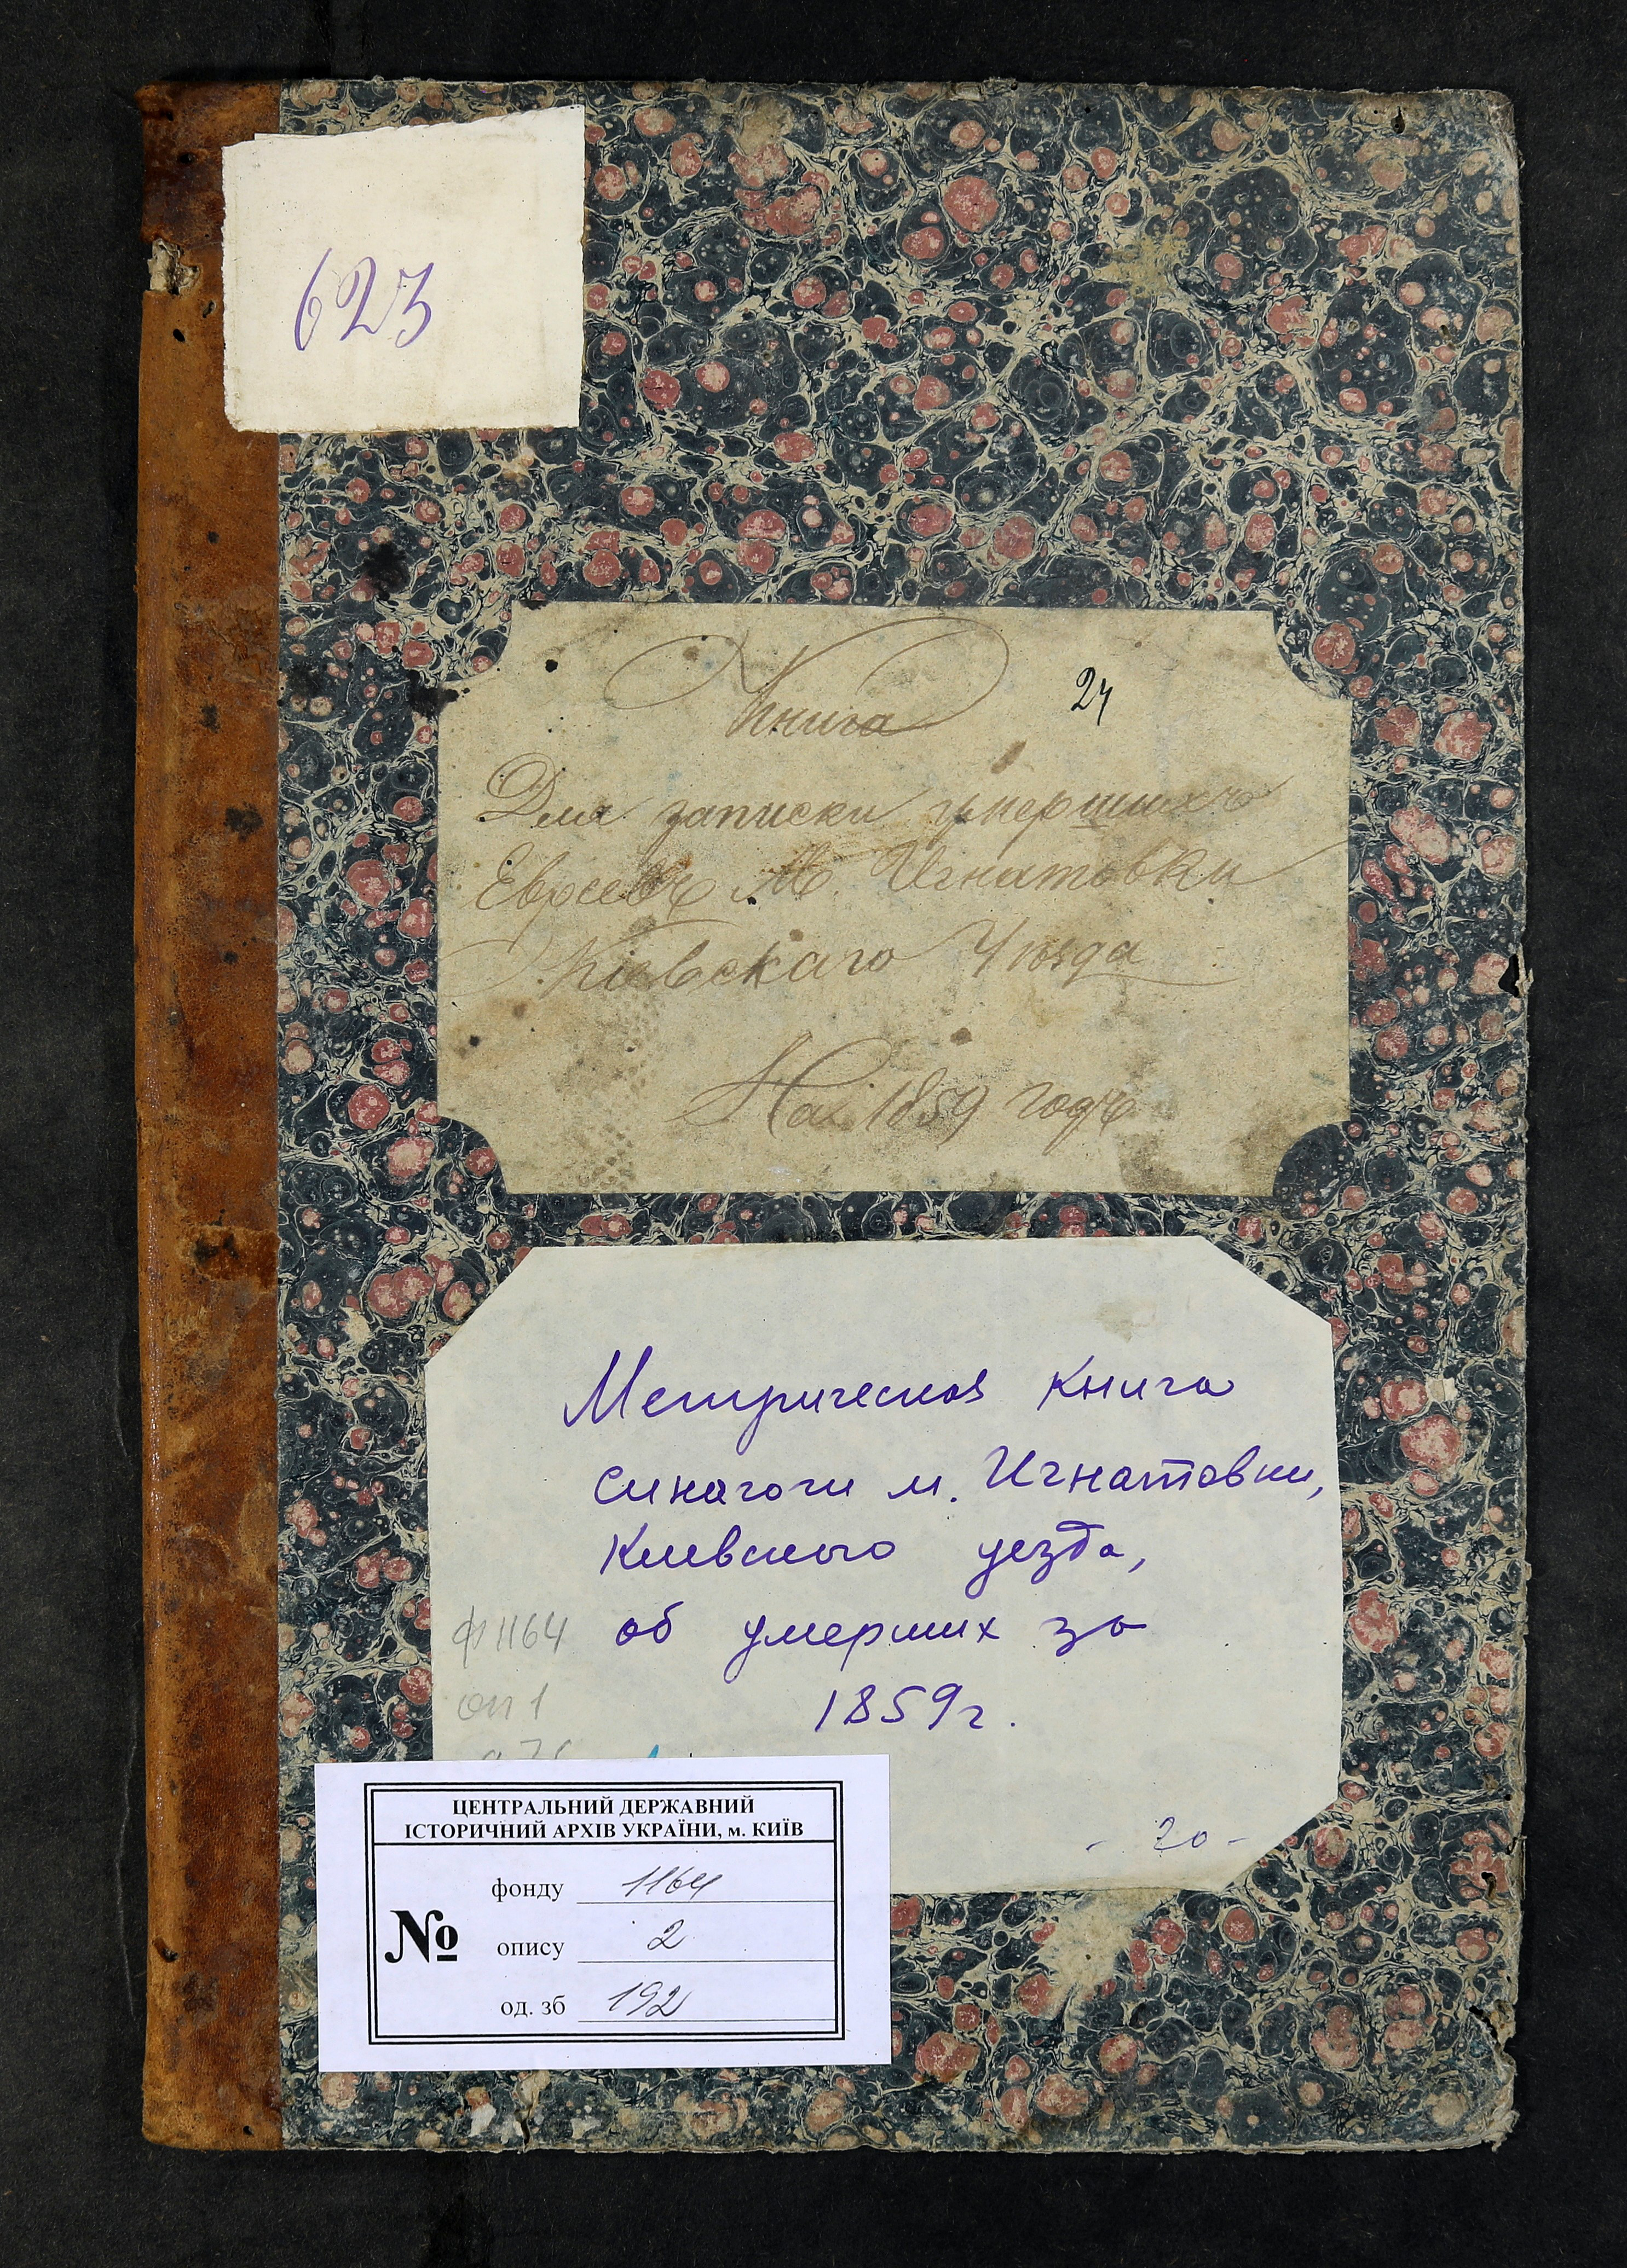 623
Книга
24
Для записки умершихъ
Евреевъ М. Игнатовки
Кіевскаго Уѣзда
На 1859 годъ
Метрическая книга
синагоги м. Игнатовки,
Киевского уезда,
ф 1164 об умерших за
оп 1 1859 г.
- 20 -
ЦЕНТРАЛЬНИЙ ДЕРЖАВНИЙ
ІСТОРИЧНИЙ АРХІВ УКРАЇНИ, м. КИЇВ
№
фонду 1164
опису 2
од. зб 192